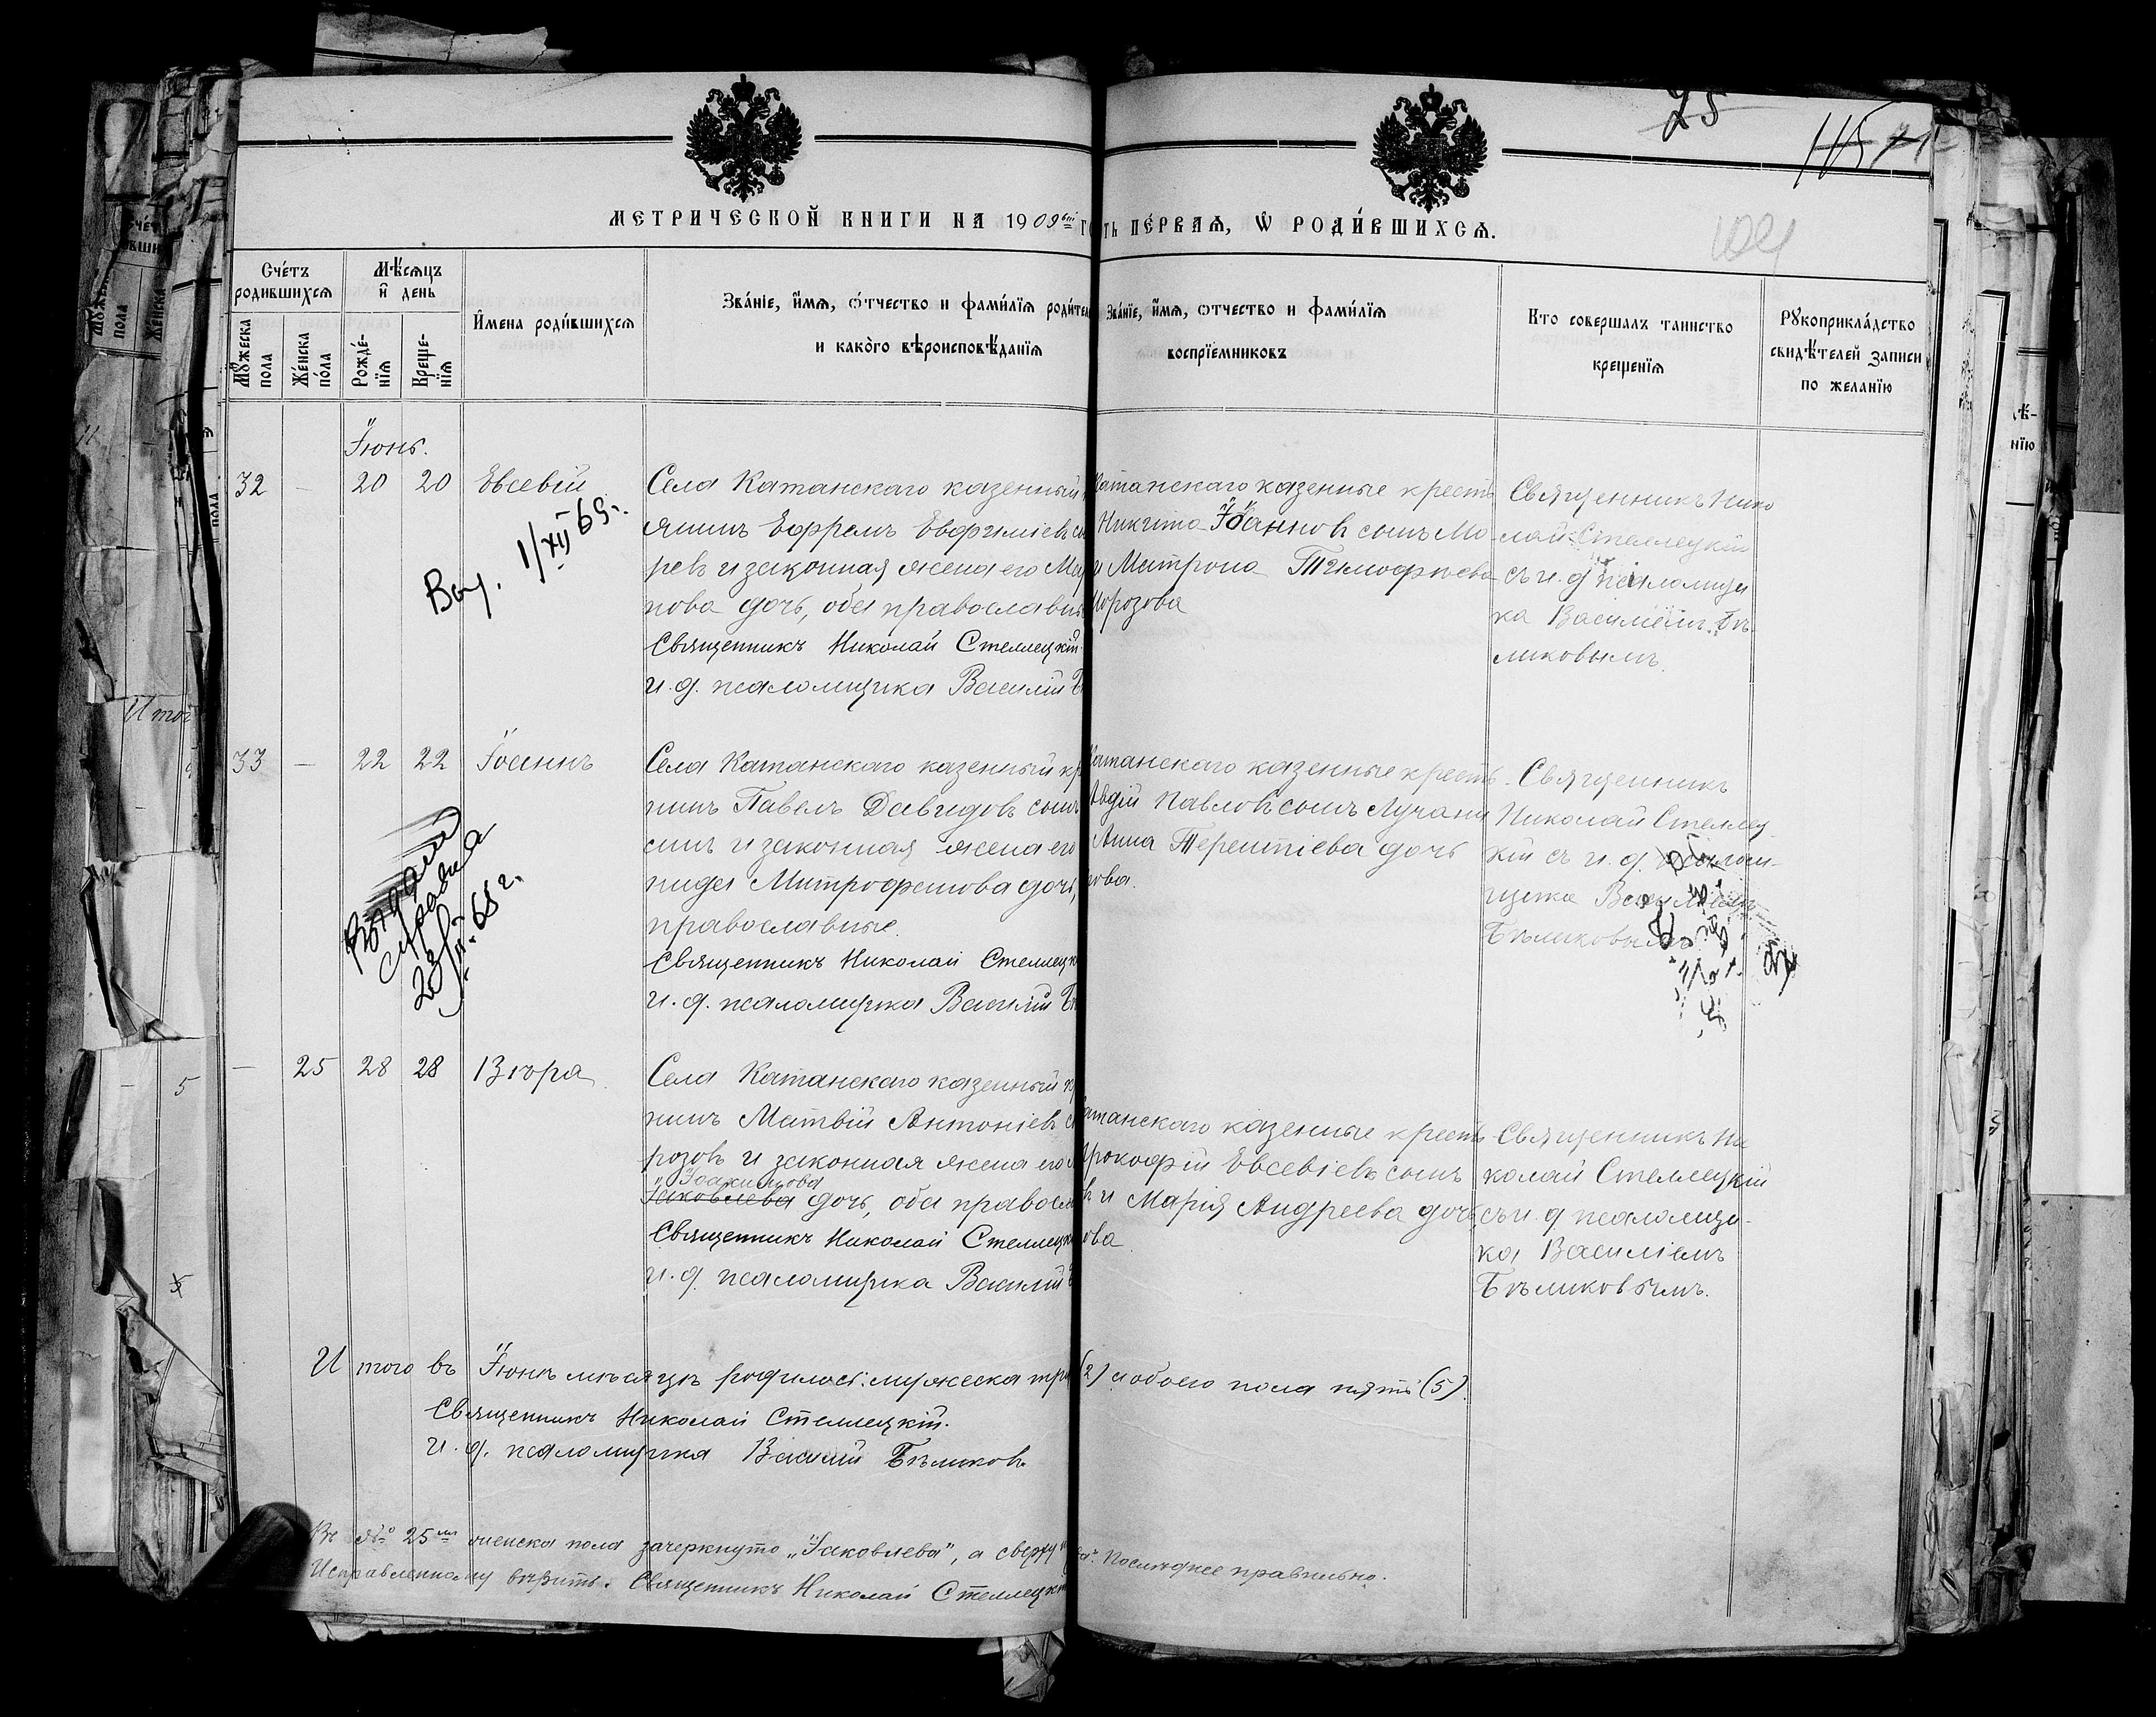 25
115 71
104
МЕТРИЧЕСКОЙ КНИГИ НА 1909
ПЕ́РВАѦ, Ѡ РОДИ́ВШИХСѦ.
Сче́тъ родившихсѧ
Мѣ́сѧцъ и҆ день
Мꙋжеска пола
Же́нска по́ла
Рожде́-нїѧ
Креще-нїѧ
И҆мена роди́вшихсѧ
Зва́нїе, и҆́мѧ, ѻ҆́тчество и фами́лїѧ
и како́гѡ вѣроисповѣ́данїѧ
Зва́нїе, и҆́мѧ, ѻтчество и фами́лїѧ
воспрїе́мниковъ
Кто совершалъ таинство
крещенїѧ
Рꙋкоприкла́дство
свидѣ́телей записи
по желанїю
Іюнь.
32 - 20 20 Евсевій
Села Катанскаго казенный
янинъ Ефремъ Евфиміевъ
ревъ и законная жена его
пова дочь, оба православные
Священникъ Николай Стеллецкій.
и. д. псаломщика Василій
Катанскаго казенные кресть
Никита Іоанновъ сынъ Мо
и Матрона Тимофѣева
Морозова
Священникъ Нико
лай Стеллецкій
съ и. д псаломщи
ка Василіемъ Бѣ
ликовымъ.
1/XII 69 г.
33 — 22 22 Іоаннъ
Села Катанскаго казенный
нинъ Павелъ Давидовъ сынъ
синъ и законная жена его
нида Митрофанова дочь,
православные.
Священникъ Николай
и. д. псаломщика Василій
Катанскаго казенные кресть
Авдій Павловъ сынъ Лучани
Анна Терентіева дочь
кова.
Священникъ
Николай Стеллец-
кій съ и. д. псалом-
щика Василіемъ
Бѣликовымъ
справка
- 25 28 28 Вѣра
Села Катанскаго казенный
нинъ Матвій Антоніевъ
розовъ и законная жена его
Іоакимова
Іаковлева дочь, оба правосл
Священникъ Николай
и. д. псаломщика Василій
Катанскаго казенные кресть
Прокофій Евсевіевъ сынъ
и Марія Андреева дочь
ова
Священникъ Ни
колай Стеллецкій
съ и. д псаломщи-
ка Василіемъ
Бѣликовымъ.
Итого въ Іюнѣ мѣсяцѣ родилось: мужеска
(2) и обоего пола пять (5).
Священникъ Николай Стеллецкій.
и. д. псаломщика Василій Бѣликовъ
Въ № 25 женска пола зачеркнуто „Іаковлева“, а сверху
Послѣднее правильно.
Исправленному вѣрить. Священникъ Николай